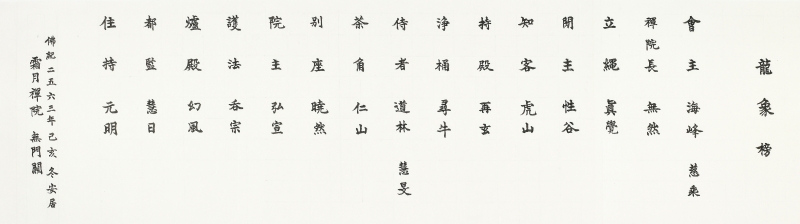 龍象榜
會主 海峰 慧乘
禪院長 無然
立繩 眞覺
閒主 性谷
知客 虎山
持殿 再玄
淨桶 尋牛
侍者 道林 慧旻
茶角 仁山
別座 曉然
院主 弘宣
護法 呑宗
爐殿 幻風
都監 慧日
住持 元明
佛紀二五六三年己亥 冬安居
霜月禪院 無門關